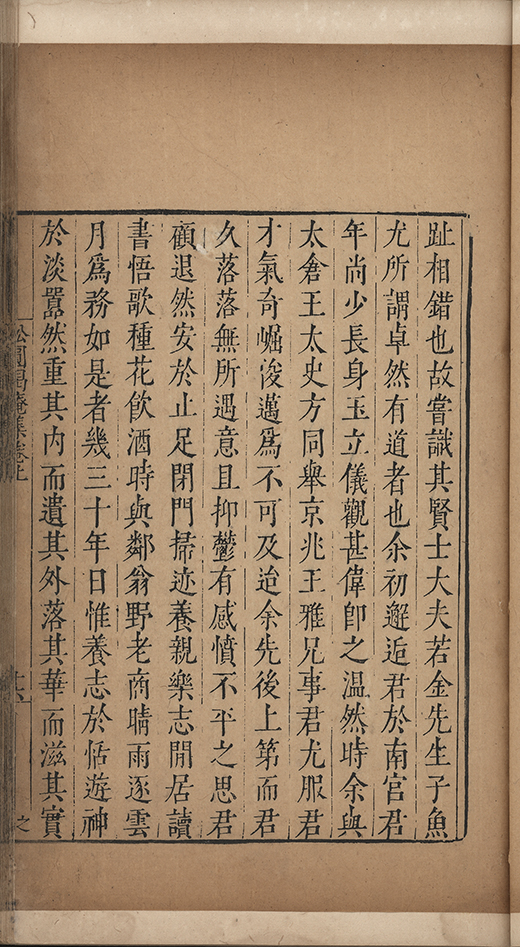 趾相錯也故嘗識其賢士大夫若金先生子魚
尤所謂卓然有道者也余初邂逅君於南宫君
年尚少長身玉立儀觀甚偉卽之温然時余與
太倉王太史方同舉京兆王雅兄事君尤服君
才氣奇崛俊邁爲不可及迨余先後上第而君
久落落無所遇意且抑鬱有感憤不平之思君
顧退然安於止足閉門掃迹養親樂志閒居讀
書悟歌種花飲酒時與鄰翁野老商晴雨逐雲
月爲務如是者幾三十年日惟養志於恬遊神
於淡囂然重其内而遺其外落其華而滋其實
松圓偈庵集卷上